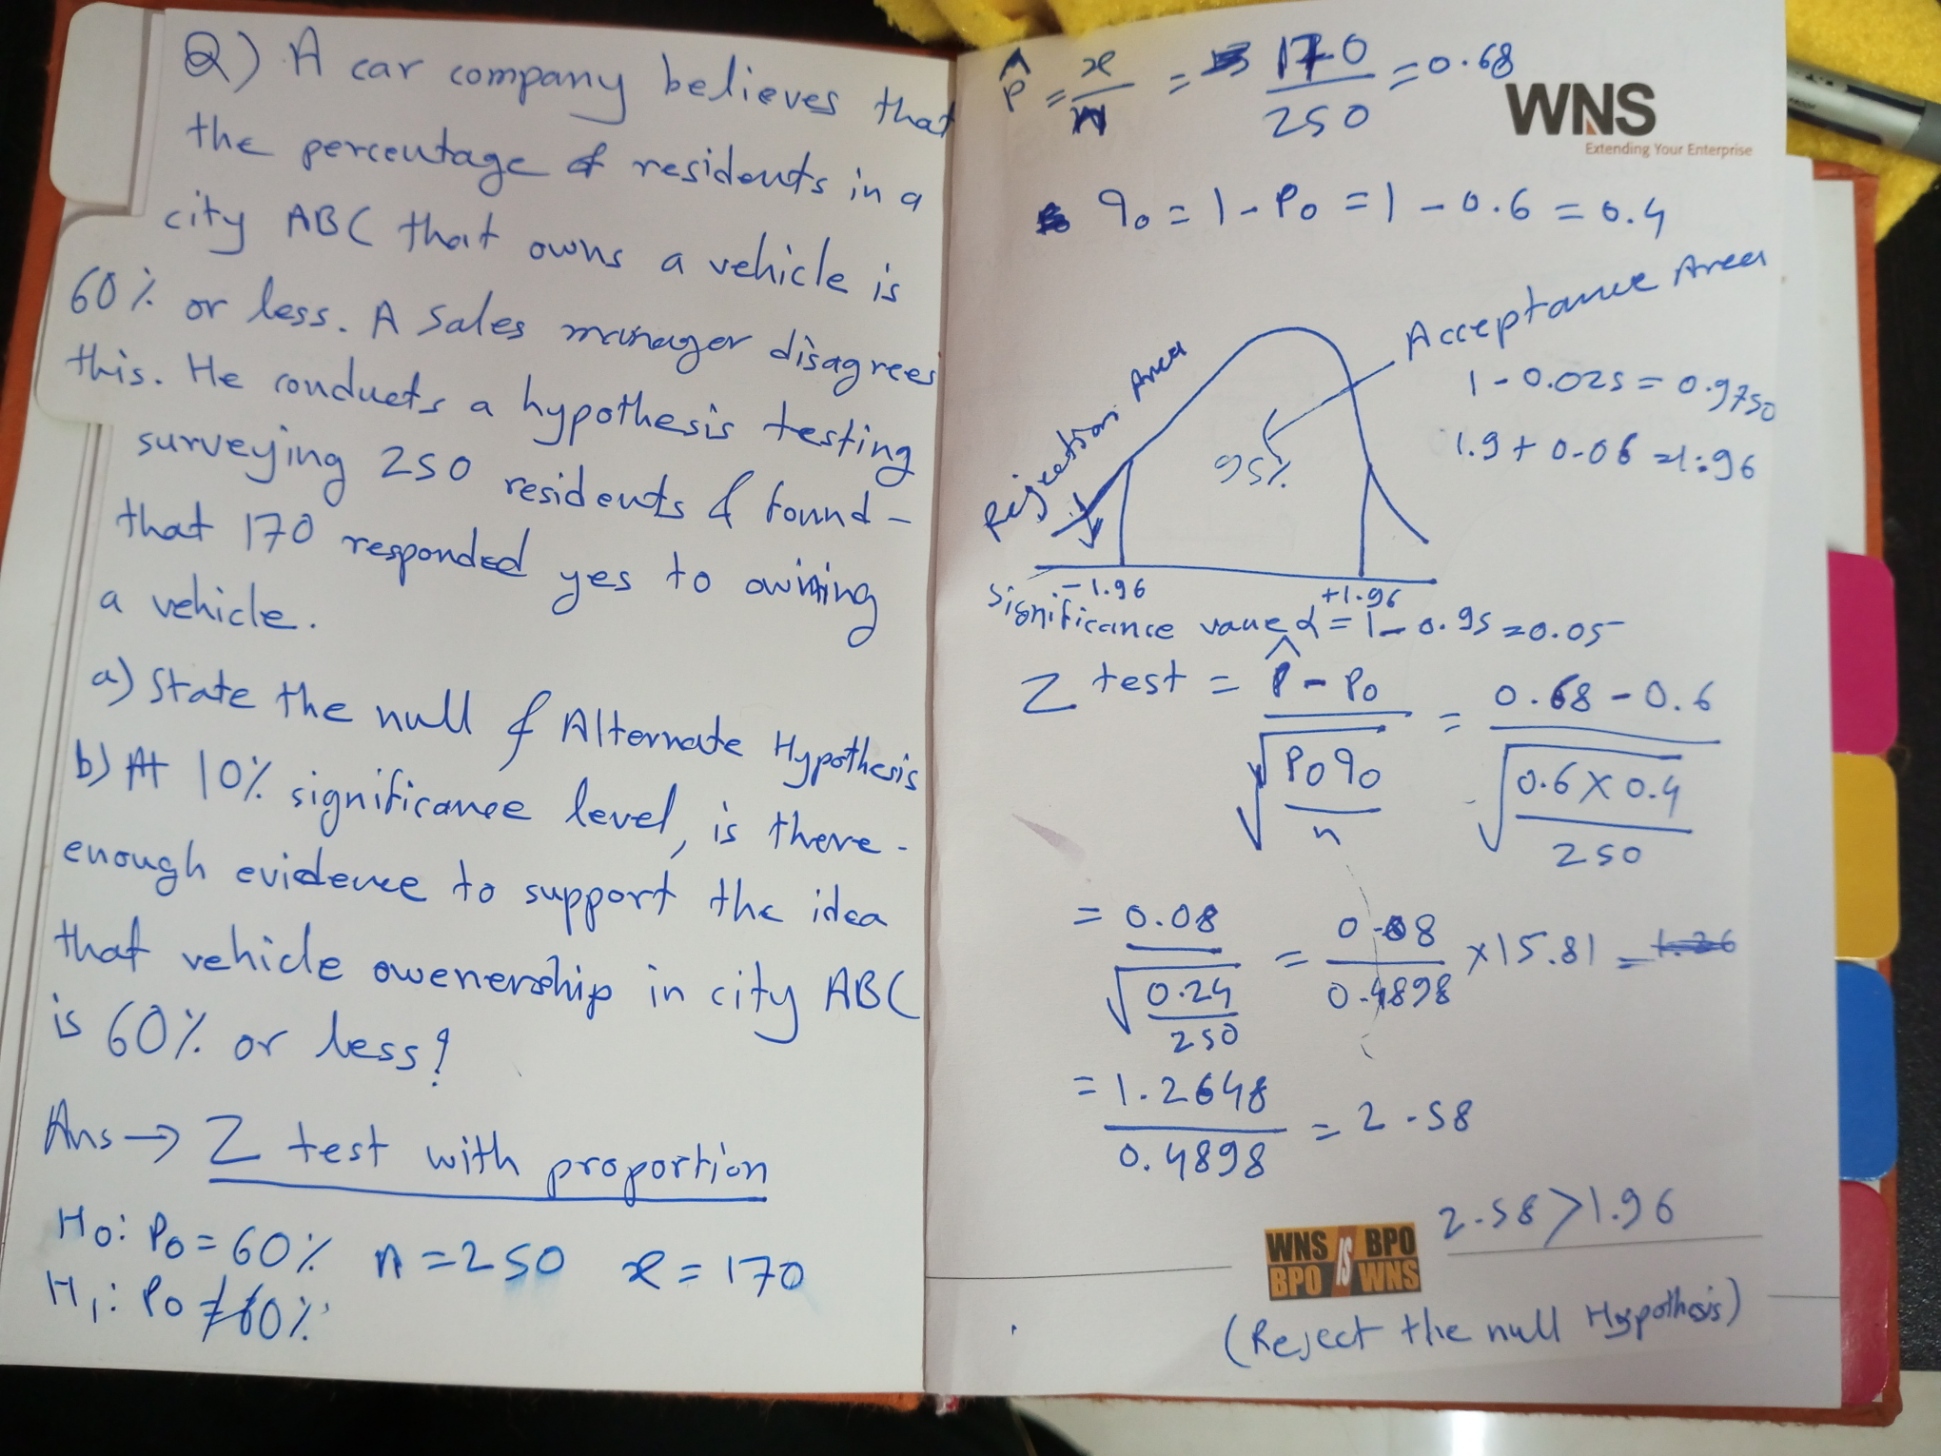 Q) A car company believes that
the percentage of residents in a
city ABC that owns a vehicle is
60% or less. A Sales manager disagrees
this. He conducts a hypothesis testing
surveying 250 residents & found -
that 170 responded yes to owining
a vehicle.
a) State the null & Alternate Hypothesis
b) At 10% significance level, is there -
enough evidence to support the idea
that vehicle owenership in city ABC
is 60% or less?
Ans → Z test with proportion
H0: P0 = 60% n = 250 x = 170
H1: P0 ≠ 60%
p̂ = x/n = 170/250 = 0.68
WNS
Extending Your Enterprise
q0 = 1 - P0 = 1 - 0.6 = 0.4
Acceptance Area
Rejection Area
1 - 0.025 = 0.9750
1.9 + 0.06 = 1.96
95%
-1.96 +1.96
Significance value α = 1 - 0.95 = 0.05
Z test = p̂ - P0 / √(P0q0/n) = 0.68 - 0.6 / √(0.6 × 0.4/250)
= 0.08 / √(0.24/250) = 0.08/0.4898 × 15.81 =
= 1.2648/0.4898 = 2.58
2.58 > 1.96
WNS IS BPO
BPO IS WNS
(Reject the null Hypothesis)